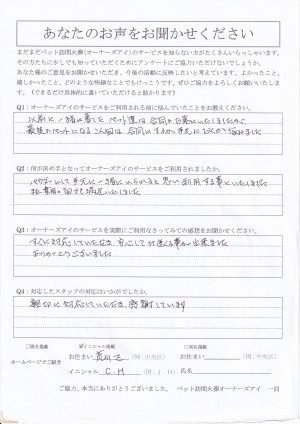 あなたのお声をお聞かせください
まだまだペット訪問火葬(オーナーズアイ)のサービスを知らない方がたくさんいらっしゃいます。
その方たちに少しでも知っていただくためにアンケートにご協力いただけないでしょうか。
あなた様のご意見をお聞かせいただき、今後の活動に反映したいと考えています。よかったこと、
嬉しかったこと、どのような些細なことでもけっこうです。ぜひご協力をよろしくお願いいたしま
す。(できるだけ具体的に書いていただけると助かります)
Q1:オーナーズアイのサービスをご利用される前に悩んでいたことをお教えください。
以前に一緒に暮した ペット達は合同のお墓にいたしましたが
最後のペットになる こん回は、合同にするか手元に
Q2:何が決め手となってオーナーズアイのサービスをご利用されましたか。
パウダーにして手元に一緒にいられると思い利用する事にいたしました
Q3:オーナーズアイのサービスを実際にご利用なさってみての感想をお聞かせください。
すぐに対応していただき、安心して
事が出来ました
ありがとうございました
Q4:対応したスタッフの対応はいかがでしたか。
親切に対応していただき 感謝しています
□匿名掲載 イニシャル掲載 □実名掲載
ホームページでご紹介
お住まい 荒川区 (例:中央区) お住まい (例:中央区)
イニシャル C.H (例:J.H) 氏名
ご協力、本当にありがとうございました。 ペット訪問火葬オーナーズアイ 一同